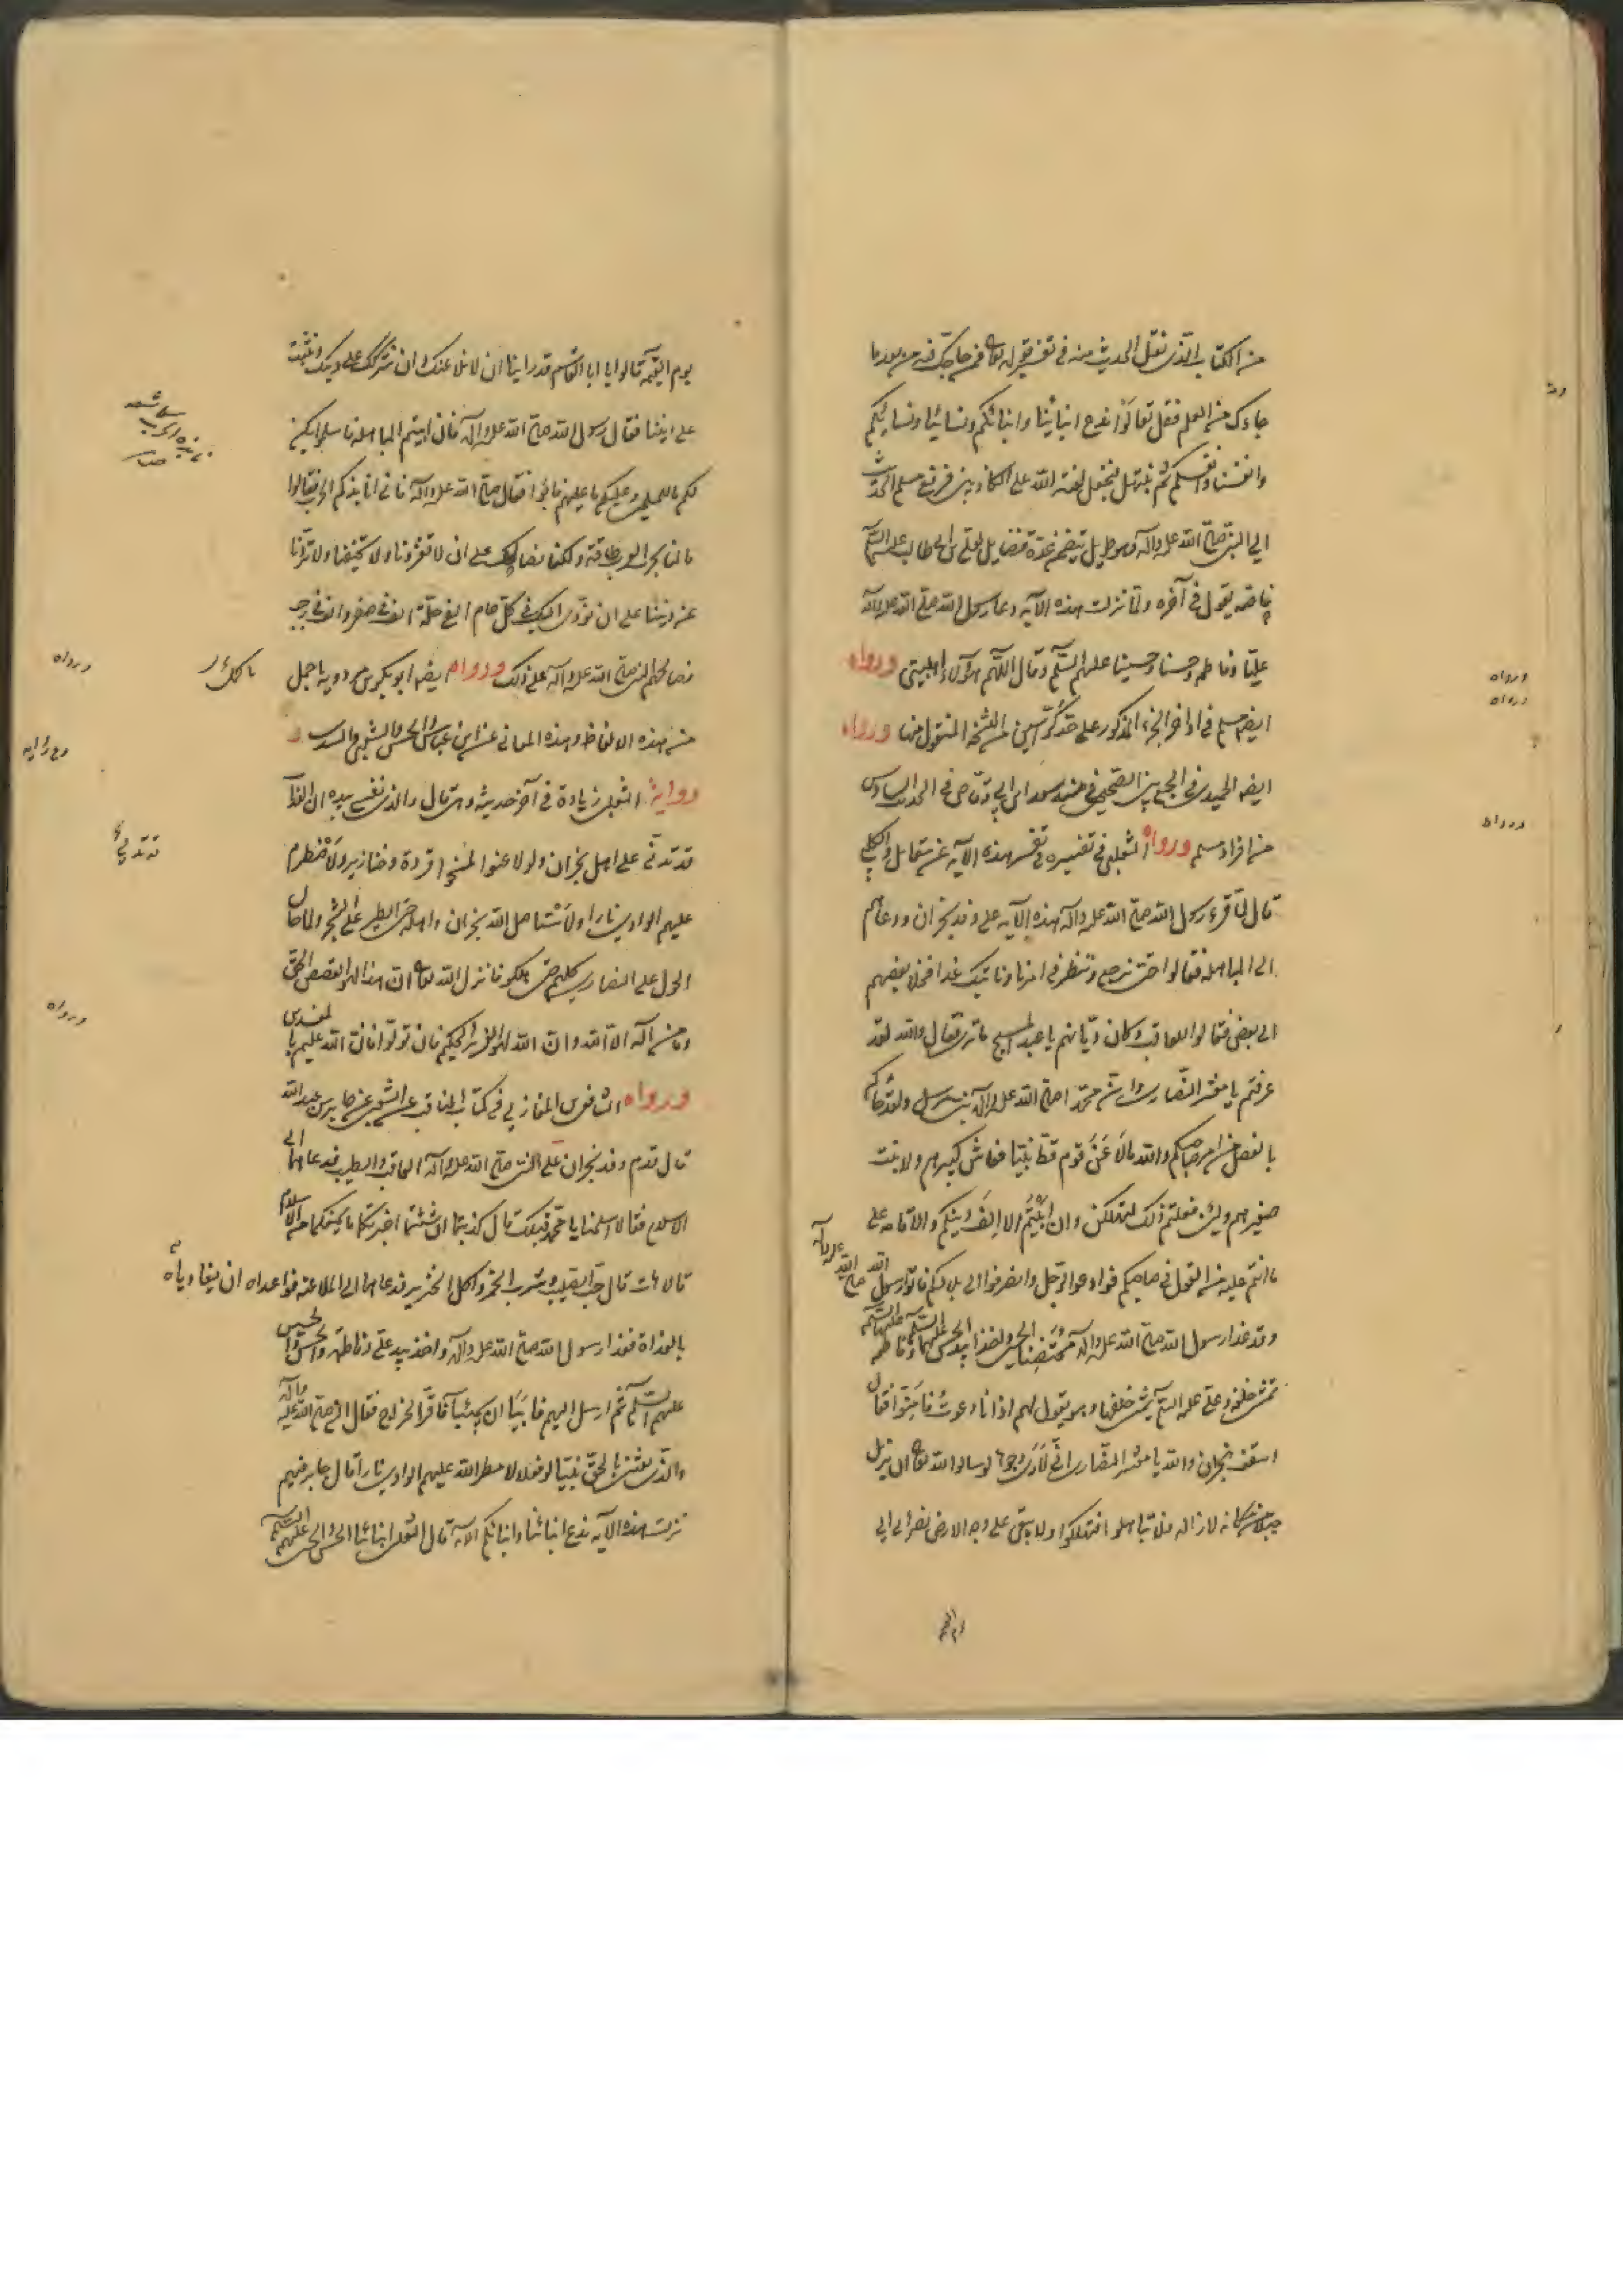 من الكتاب الذى نقل الحديث منه فى تفسير قوله تعالى فمن حاجك فيه من بعد ما
جاءك من العلم فقل تعالوا ندع ابنائنا وابنائكم ونسائنا ونسائكم
وانفسنا وانفسكم ثم نبتهل فنجعل لعنة الله على الكاذبين فرفع مسلم الحديث
الى النبى صلى الله عليه وآله وهو طويل يتضمن عدة فضايل لعلى بن ابى طالب عليه السلام
خاصة يقول فى آخره ولما نزلت هذه الآيه دعا رسول الله صلى الله عليه وآله
عليّا وفاطمه وحسنا وحسينا عليهم السلم وقال اللهم هؤلاء اهلبيتى ورواه
ايضا مسلم فى اواخر الجزء المذكور على حد كراسين من النسخة المنقول منها ورواه
ايضا الحميدى فى الجمع بين الصحيحين فى مسند سعد ابن ابى وقاص فى الحديث السادس
من افراد مسلم ورواه الثعلبى فى تفسيره فى تفسير هذه الآيه عن مقاتل والكلبى
قال لما قرء رسول الله صلى الله عليه وآله هذه الآيه على وفد نجران ودعاهم
الى المباهله فقالوا حتى نرجع وننظر فى امرنا وناتيك غدا فخلا بعضهم
الى بعض فقالوا للعاقب وكان ديانهم يا عبد المسيح ما ترى فقال والله لقد
عرفتم يا معشر النصارى ان محمدا صلى الله عليه وآله نبى مرسل ولقد جائكم
بالفصل من امر صاحبكم والله ما لاعن قوم قط نبيا فعاش كبيرهم ولا نبت
صغيرهم ولئن فعلتم ذلك لتهلكن وان ابيتم الا الف دينكم والاقامه على
ما انتم عليه من القول فى صاحبكم فوادعوا الرجل وانصرفوا الى بلادكم فاتوا رسول الله صلى الله عليه وآله
وقد غدا رسول الله صلى الله عليه وآله محتضنا الحسين واخذا بيد الحسن عليهما السلم وفاطمه عليها السلم
تمشى خلفه وعلى عليه السلم يمشى خلفها وهو يقول لهم اذا انا دعوت فامّنوا فقال
اسقف نجران والله يا معشر النصارى انى لارى وجوها لو سالوا الله تعالى ان يزيل
جبلا من مكانه لازاله فلا تباهلوا فتهلكوا ولا يبقى على وجه الارض نصرانى الى
ورواه
ورواه
ورواه
يوم القيمه قالوا يا ابا القاسم قد راينا ان لا نلاعنك وان نتركك على دينك ونثبت
على ديننا فقال رسول الله صلى الله عليه وآله فان ابيتم المباهله فاسلموا يكن
لكم ما للمسلمين وعليكم ما عليهم فابوا فقال صلى الله عليه وآله فانى انابذكم الحرب فقالوا
ما لنا بحرب العرب طاقة ولكنا نصالحك على ان لا تغزونا ولا تخيفنا ولا تردنا
عن ديننا على ان نؤدى اليك فى كل عام الفى حلّه الف فى صفر والف فى رجب
فصالحهم النبى صلى الله عليه وآله على ذلك ورواه ايضا ابو بكر بن مردويه باجمل
من هذه الالفاظ وهذه المعانى عن ابن عباس والحسن والشعبى والسدى و
رواية الثعلبى زيادة فى آخر حديثه وهى قال والذى نفسى بيده ان العذاب
قد تدلى على اهل نجران ولو لا عنوا لمسخوا قردة وخنازير ولاضطرم
عليهم الوادى نارا ولاستاصل الله نجران واهله حتى الطير على الشجر ولما حال
الحول على النصارى كلهم حتى هلكوا فانزل الله تعالى ان هذا لهو القصص الحق
وما من اله الا الله وان الله لهو العزيز الحكيم فان تولوا فان الله عليم بالمفسدين
ورواه الشافعى المغازلى فى كتاب المناقب عن الشعبى عن جابر بن عبد الله
قال قدم وفد نجران على النبى صلى الله عليه وآله العاقب والطيب فدعاهما الى
الاسلام فقالا اسلمنا يا محمد قبلك قال كذبتما ان شئتما اخبرتكما ما يمنعكما من الاسلام
قالا هات قال حب الصليب وشرب الخمر واكل الخنزير فدعاهما الى الملاعنه فواعداه ان يغادياه
بالغداة فغدا رسول الله صلى الله عليه وآله واخذ بيد على وفاطمه والحسن والحسين
عليهم السلم ثم ارسل اليهم فابيا ان يجيئا فاقرّا بالخراج فقال النبى صلى الله عليه وآله
والذى بعثنى بالحق نبيا لو فعلا لامطر الله عليهم الوادى نارا قال جابر فيهم
نزلت هذه الآيه ندع ابنائنا وابنائكم الآيه قال الشعبى ابنائنا الحسن والحسين عليهم السلم
ورواه
ورواه